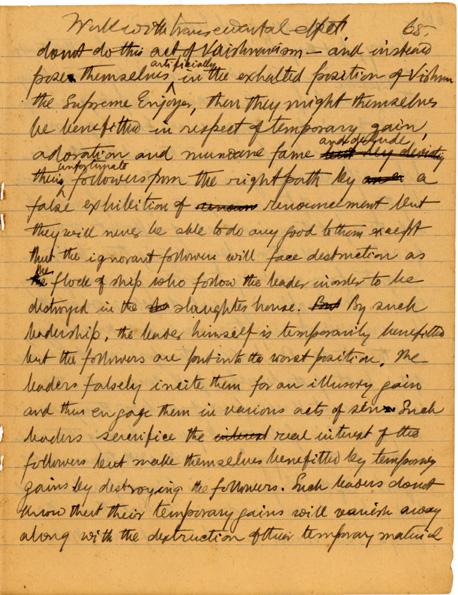 Work with transcendental effect 65.
donot do this act of Vaishnavism — and instead
poses themselves artificially in the exhalted position of Vishnu
the Supreme Enjoyer, then they might themselves
be benefitted in respect of temporary gain,
adoration and mundane fame and misguide
their unfortunate followers from the right path by a
false exhibition of renouncement but
they will never be able to do any good to them except
that the ignorant followers will face destruction as
the flock of ship who follow the leader inorder to be
destroyed in the slaughter house. By such
leadership, the leader himself is temporarily benefitted
but the followers are put into the worst position. The
leaders falsely incite them for an illusory gain
and thus engage them in various acts of sin. Such
leaders sacrifice the real interest of the
followers but make themselves benefitted by temporary
gains by destroying the followers. Such leaders donot
know that their temporary gains will vanish away
along with the destruction of their temporary material